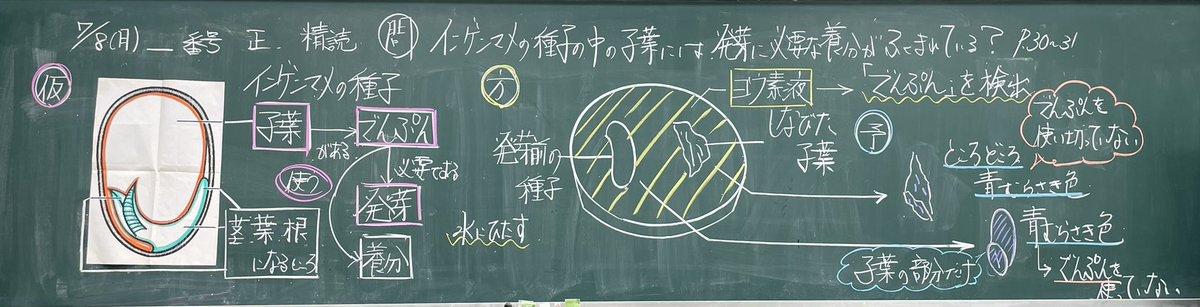 7/8(月)＿番号 正. 精読 問 インゲンマメの種子の中の子葉には、発芽に必要な養分がふくまれている? P30~31
仮
インゲンマメの種子
子葉
がある
でんぷん
使う
必要である
発芽
養分
茎・葉・根
になるところ
方
ヨウ素液 → 「でんぷん」を検出
しなびた
子葉
発芽前の
種子
水にひたす
予
でんぷんを
使い切っていない
ところどころ
青むらさき色
子葉の部分だけ
青むらさき色
→ でんぷんを
使っていない